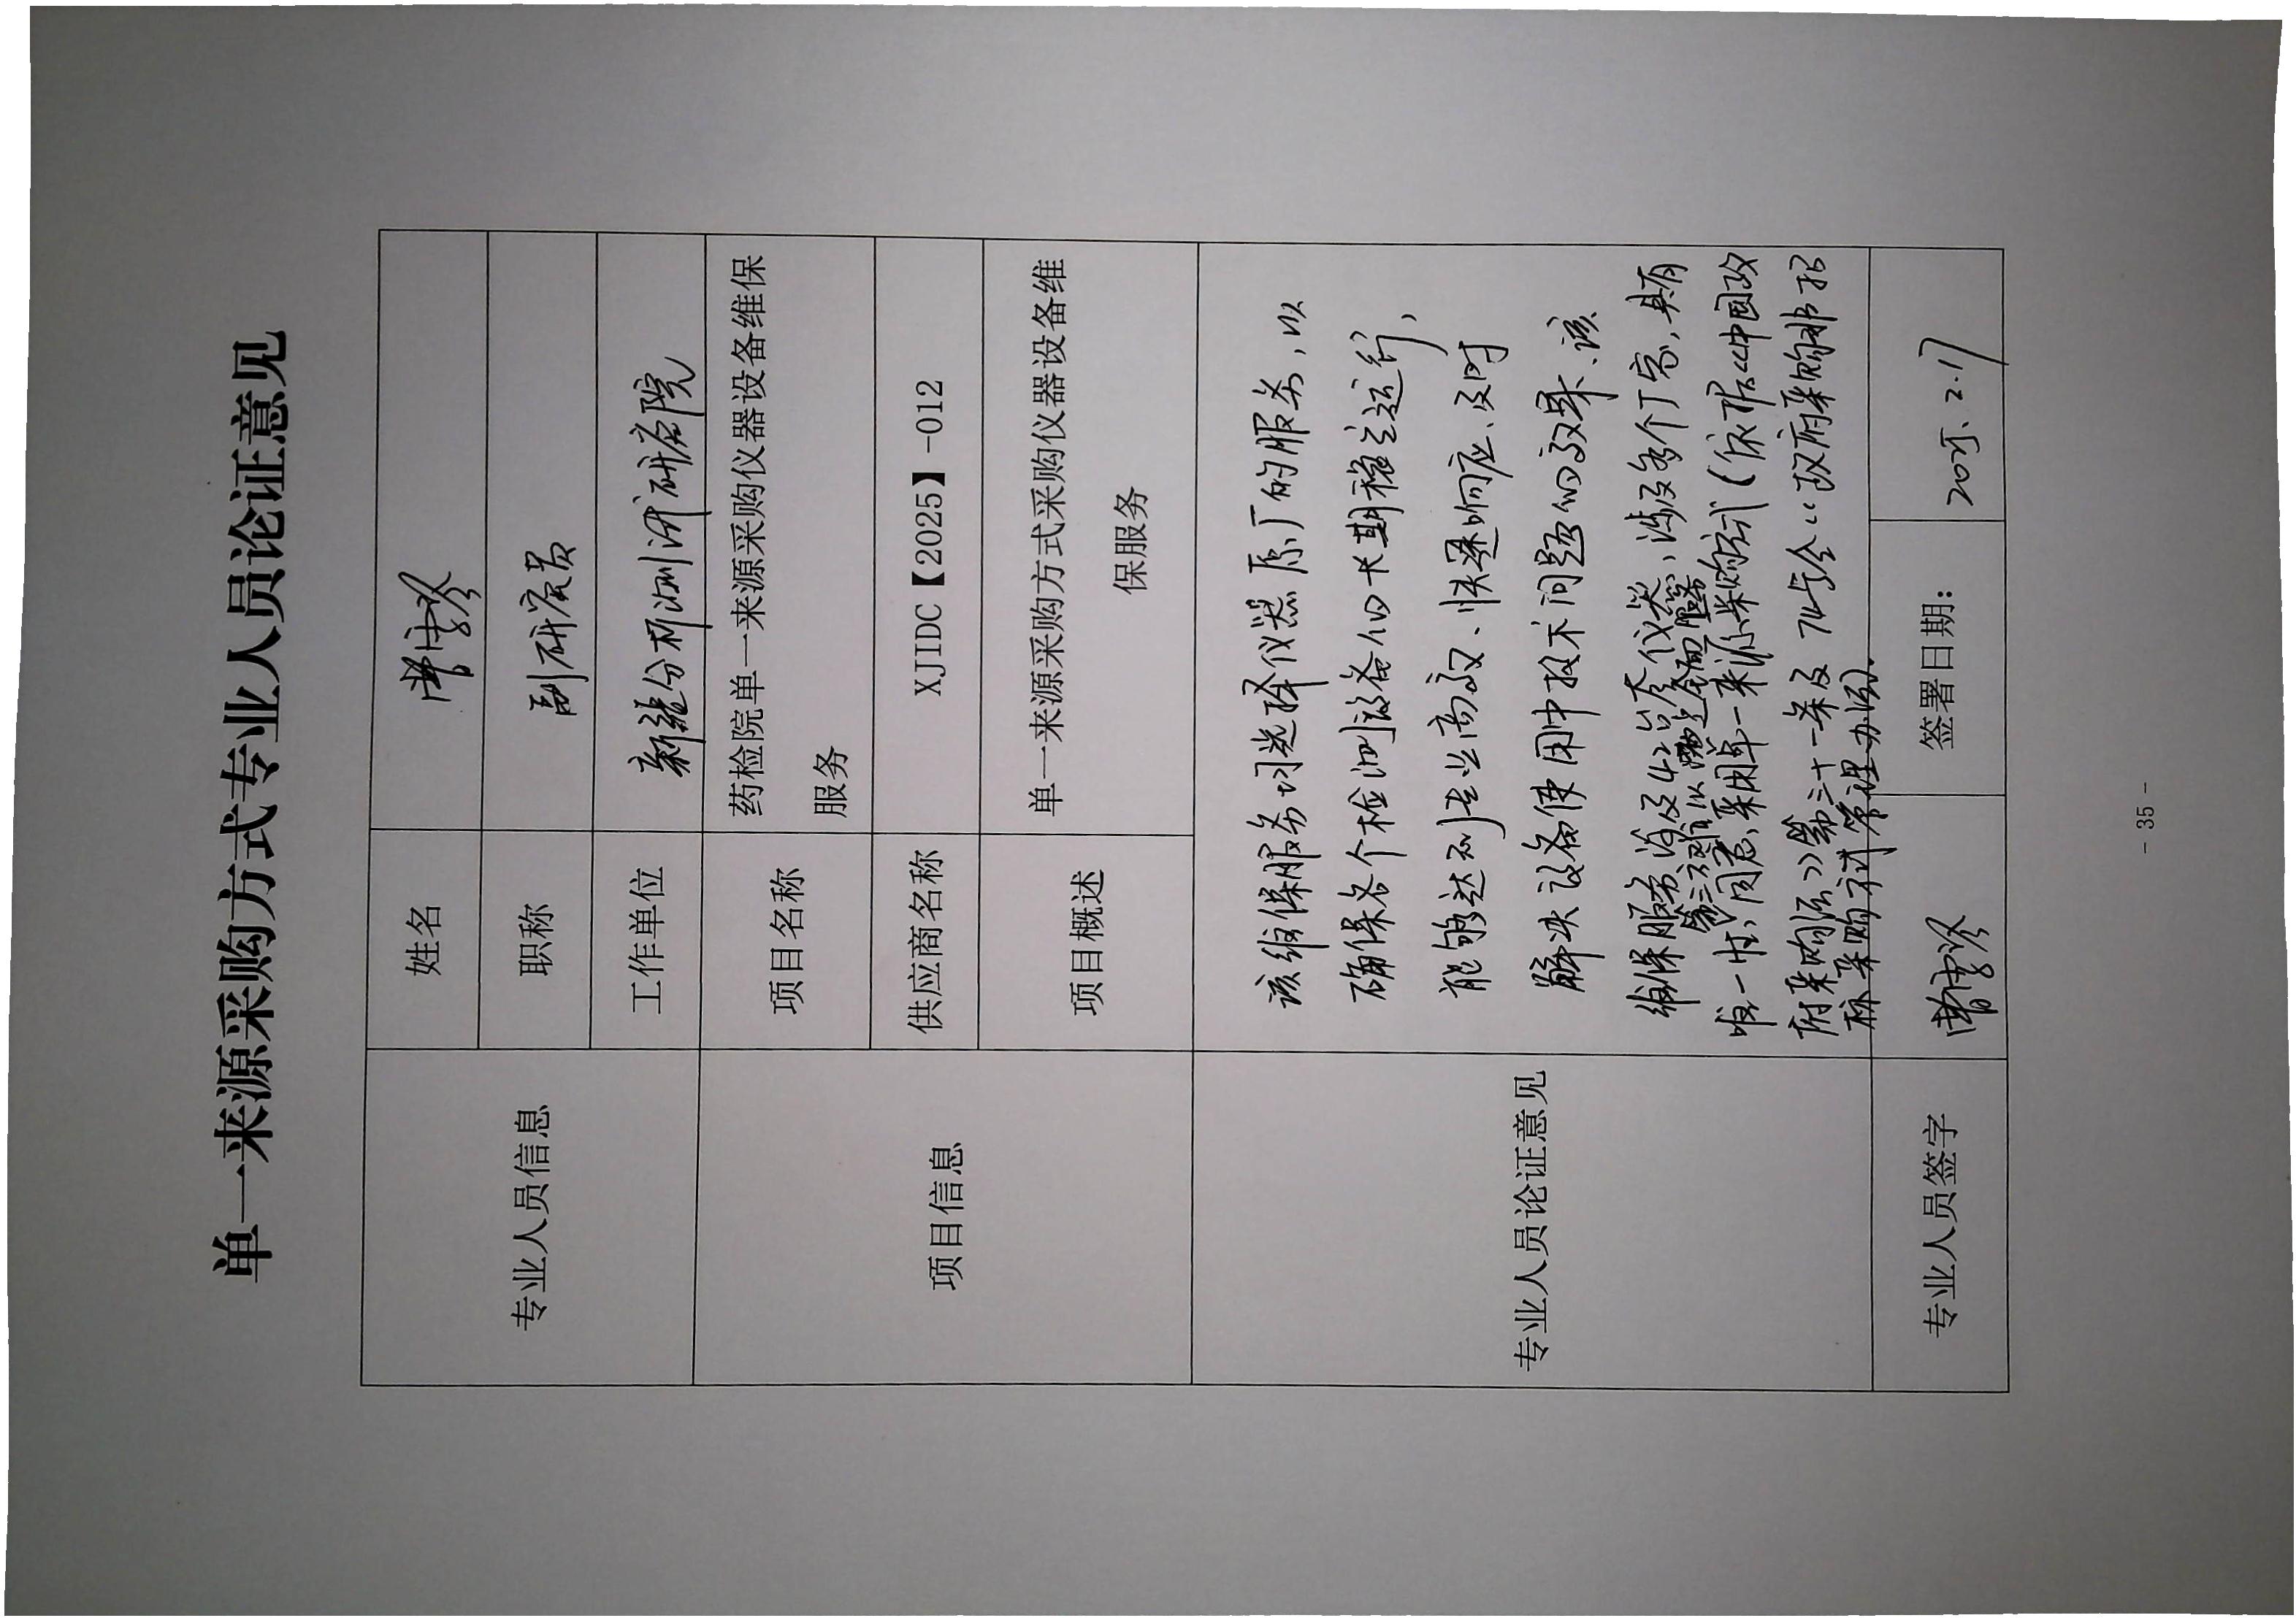 单一来源采购方式专业人员论证意见
专业人员信息
姓名
职称
副研究员
工作单位
新疆分析测试研究院
项目信息
项目名称
药检院单一来源采购仪器设备维保
服务
供应商名称
XJIDC【2025】-012
项目概述
单一来源采购方式采购仪器设备维
保服务
专业人员论证意见
该维保服务均选择仪器原厂的服务,以
确保各个检测设备的长期稳定运行,
能够达到专业高效、快速响应、及时
解决设备使用中技术问题的效果、该
维保服务涉及42台大仪器,涉及多个厂家,具有
第三方难以满足全面服务
唯一性,同意采用单一来源采购方式(依据《中国政
府采购法》第三十一条及74号令《政府采购非招
标采购方式管理办法》
专业人员签字
签署日期:
2025.2.17
- 35 -